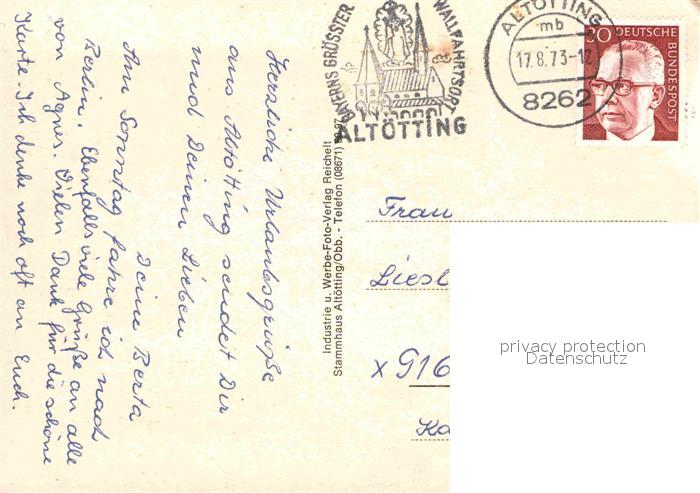 Herzliche Urlaubsgrüße
aus Altötting sendet Dir
und Deinen Lieben
Deine Berta
Am Sonntag fahre ich nach
Berlin. Ebenfalls viele Grüße an alle
von Agnes. Vielen Dank für die schöne
Karte. Ich denke noch oft an Euch.
Industrie u. Werbe-Foto-Verlag Reichelt
Stammhaus Altötting/Obb. - Telefon (08671)
BAYERNS GRÖSSTER WALLFAHRTSORT
ALTÖTTING
ALTÖTTING
mb
17.8.73-12
8262
30 DEUTSCHE
BUNDESPOST
Frau
Liesl
x 916
Ka
privacy protection
Datenschutz